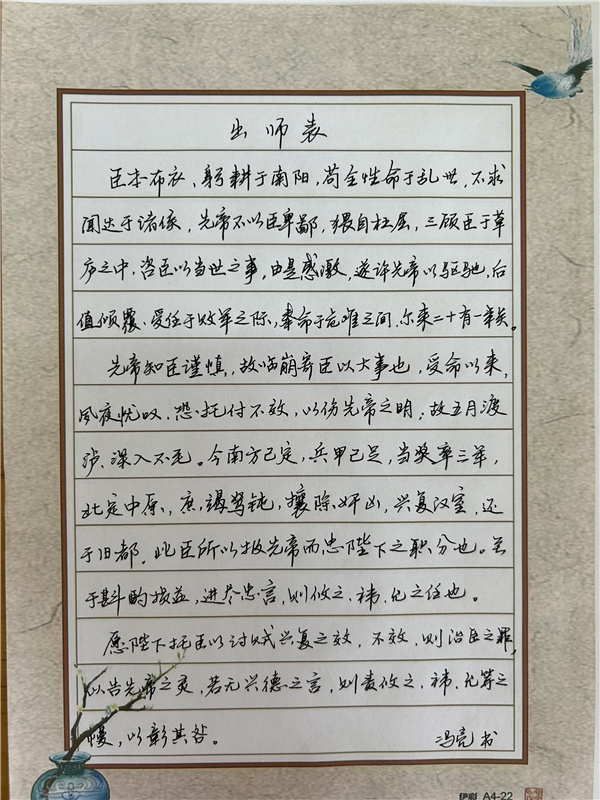 出师表
臣本布衣、躬耕于南阳,苟全性命于乱世,不求
闻达于诸侯,先帝不以臣卑鄙,猥自枉屈,三顾臣于草
庐之中,咨臣以当世之事,由是感激,遂许先帝以驱驰,后
值倾覆、受任于败军之际,奉命于危难之间,尔来二十有一年矣。
先帝知臣谨慎,故临崩寄臣以大事也,受命以来,
夙夜忧叹、恐托付不效,以伤先帝之明;故五月渡
泸、深入不毛。今南方已定,兵甲已足,当奖率三军,
北定中原,庶竭驽钝,攘除奸凶,兴复汉室,还
于旧都,此臣所以报先帝而忠陛下之职分也。至
于斟酌损益,进尽忠言,则攸之、祎、允之任也。
愿陛下托臣以讨贼兴复之效,不效,则治臣之罪,
以告先帝之灵,若无兴德之言,则责攸之、祎、允等之
慢,以彰其咎。 冯亮书
A4-22